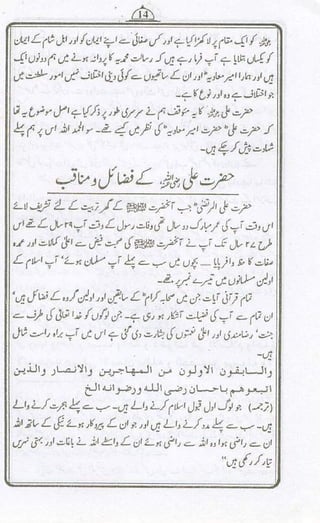 14
کو ایک مقام پر لا کھڑا کیا ہے اور کس صفائی سے اپنے ایمان کو اور اہل شام کے ایمان
کو یکساں بتلایا ہے آپ فرما رہے ہیں کہ رسالت محمدیہ کا پروانہ ہونے میں ہم دونوں ایک
ہیں اور ہمارا امیر معاویہؓ اور ان کے ساتھیوں سے کوئی دینی اختلاف نہیں امور سلطنت میں
جو اختلاف ہے وہ اور نوع کا ہے۔
حضرت علی کا یہ متوقف ہم نے سرسری طور پر ذکر کیا ہے اصل موضوع یہ تھا
کہ حضرت علیؓ حضرت امیر معاویہؓ کی نظر میں کیسے تھے۔ سو الحمد للہ اس پر ہم پہلے
شہادت پیش کر چکے ہیں۔
حضرت علی رضی اللہ عنہ کے فضائل و مناقب
حضرت علی المرتضیٰؓ جب آنحضرت ﷺ کے گھر تربیت کے لئے تشریف لائے
اس وقت آپ کی عمر مبارک دو سال تھی وفات رسول کے وقت آپ ۲۹ سال کے تھے اس
طرح ۲۷ سال تک آپ نے آنحضرت ﷺ کی صحبت فیض سے اعلیٰ کمالات اور عمدہ
صفات کا حظ وافر پایا... بچوں میں سب سے پہلے آپ مسلمان ہوئے آپ اسلام کے
اولین مسلمانوں میں تیسرے نمبر پر تھے۔
تمام قرآنی آیات جن میں صحابہ کرامؓ کے سابقین اور اولین گروہ کے فضائل ہیں'
ان تمام سے آپ کی فضیلت آشکار ہو رہی ہے۔ جن لوگوں کو خدا تعالیٰ کی طرف سے
جنت' رضامندی اور اعلیٰ نعمتوں کی بشارت دی گئی ہے اس میں آپ براہ راست شامل
ہیں۔
والسابقون الاولون من المهاجرين والانصار والذين
اتبعوهم باحسان رضى الله ورضوانه الخ
(ترجمہ) جو لوگ اول قبول اسلام کرنے والے ہیں۔ سب سے پہلے ہجرت کرنے والے
ہیں۔ سب سے پہلے مدد کرنے والے ہیں اور جو ان کے پیروکار ہوئے نیکی کے ساتھ اللہ
ان سے راضی ہوا وہ اللہ سے راضی ہوئے ان کے واسطے اللہ نے باغات اور بہتی نہریں
تیار کر رکھی ہیں"